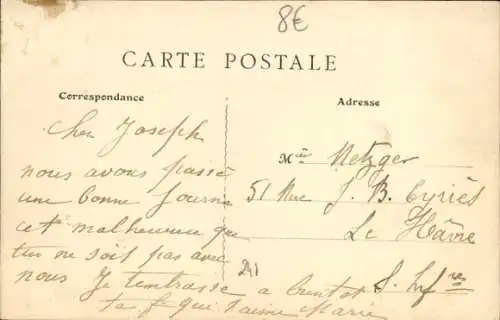 8€
CARTE POSTALE
Correspondance
Adresse
Cher Joseph
nous avons passé
une bonne Journé
cet malheureu que
tu ne soit pas avec
nous Je t'embrasse a bientot
ta f qui t'aime Marie
Metzger
51 Rue J. B. Eyriès
Le Hâvre
S. Infre
241